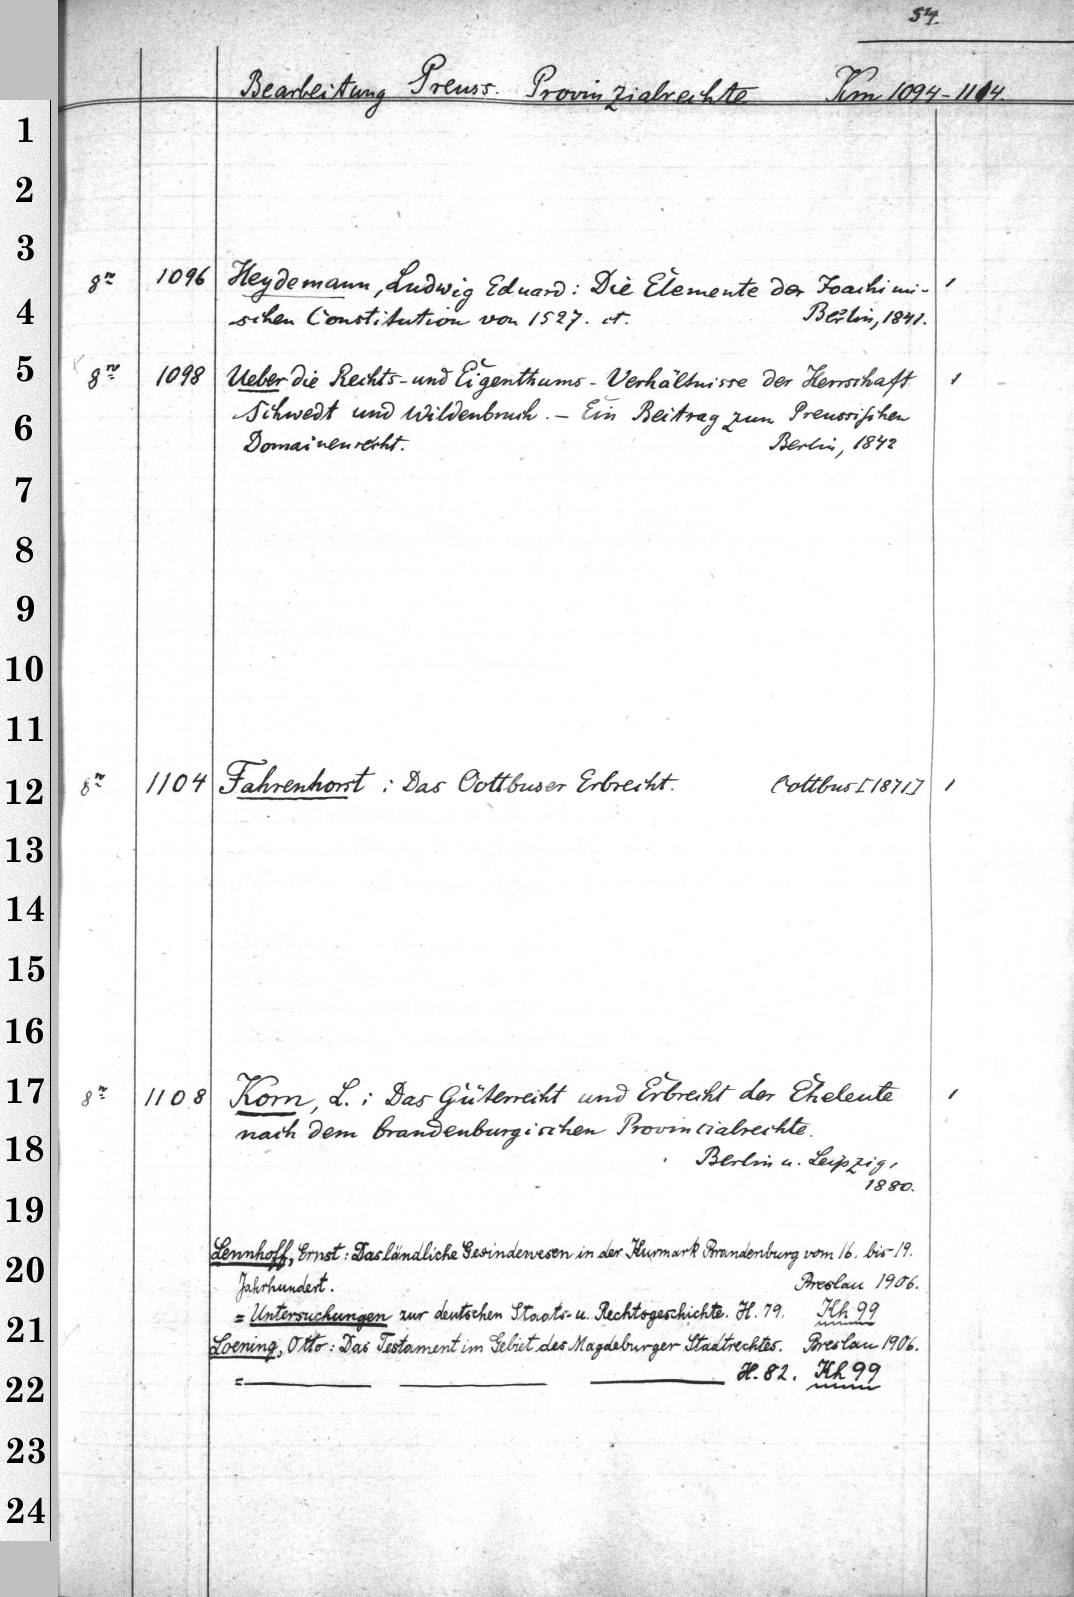 54.
Bearbeitung Preuss. Provinzialrechte Km 1094-1114.
1
2
3
8º 1096 Heydemann, Ludwig Eduard: Die Elemente der Joachimi- 1
4
schen Constitution von 1527. ct. Berlin, 1841.
5
8º 1098 Ueber die Rechts- und Eigenthums-Verhältnisse der Herrschaft 1
6
Schwedt und Wildenbruch. – Ein Beitrag zum Preussischen
Domainenrecht. Berlin, 1842
7
8
9
10
11
12
8º 1104 Fahrenhorst: Das Cottbuser Erbrecht. Cottbus [1871] 1
13
14
15
16
17
8º 1108 Korn, L.: Das Güterrecht und Erbrecht der Eheleute 1
18
nach dem brandenburgischen Provincialrechte.
Berlin u. Leipzig,
1880.
19
20
Lennhoff, Ernst: Das ländliche Gesindewesen in der Kurmark Brandenburg vom 16. bis 19.
Jahrhundert. Breslau 1906.
21
= Untersuchungen zur deutschen Staats- u. Rechtsgeschichte. H. 79. Kh 99
Loening, Otto: Das Testament im Gebiet des Magdeburger Stadtrechtes. Breslau 1906.
22
= H. 82. Kh 99
23
24